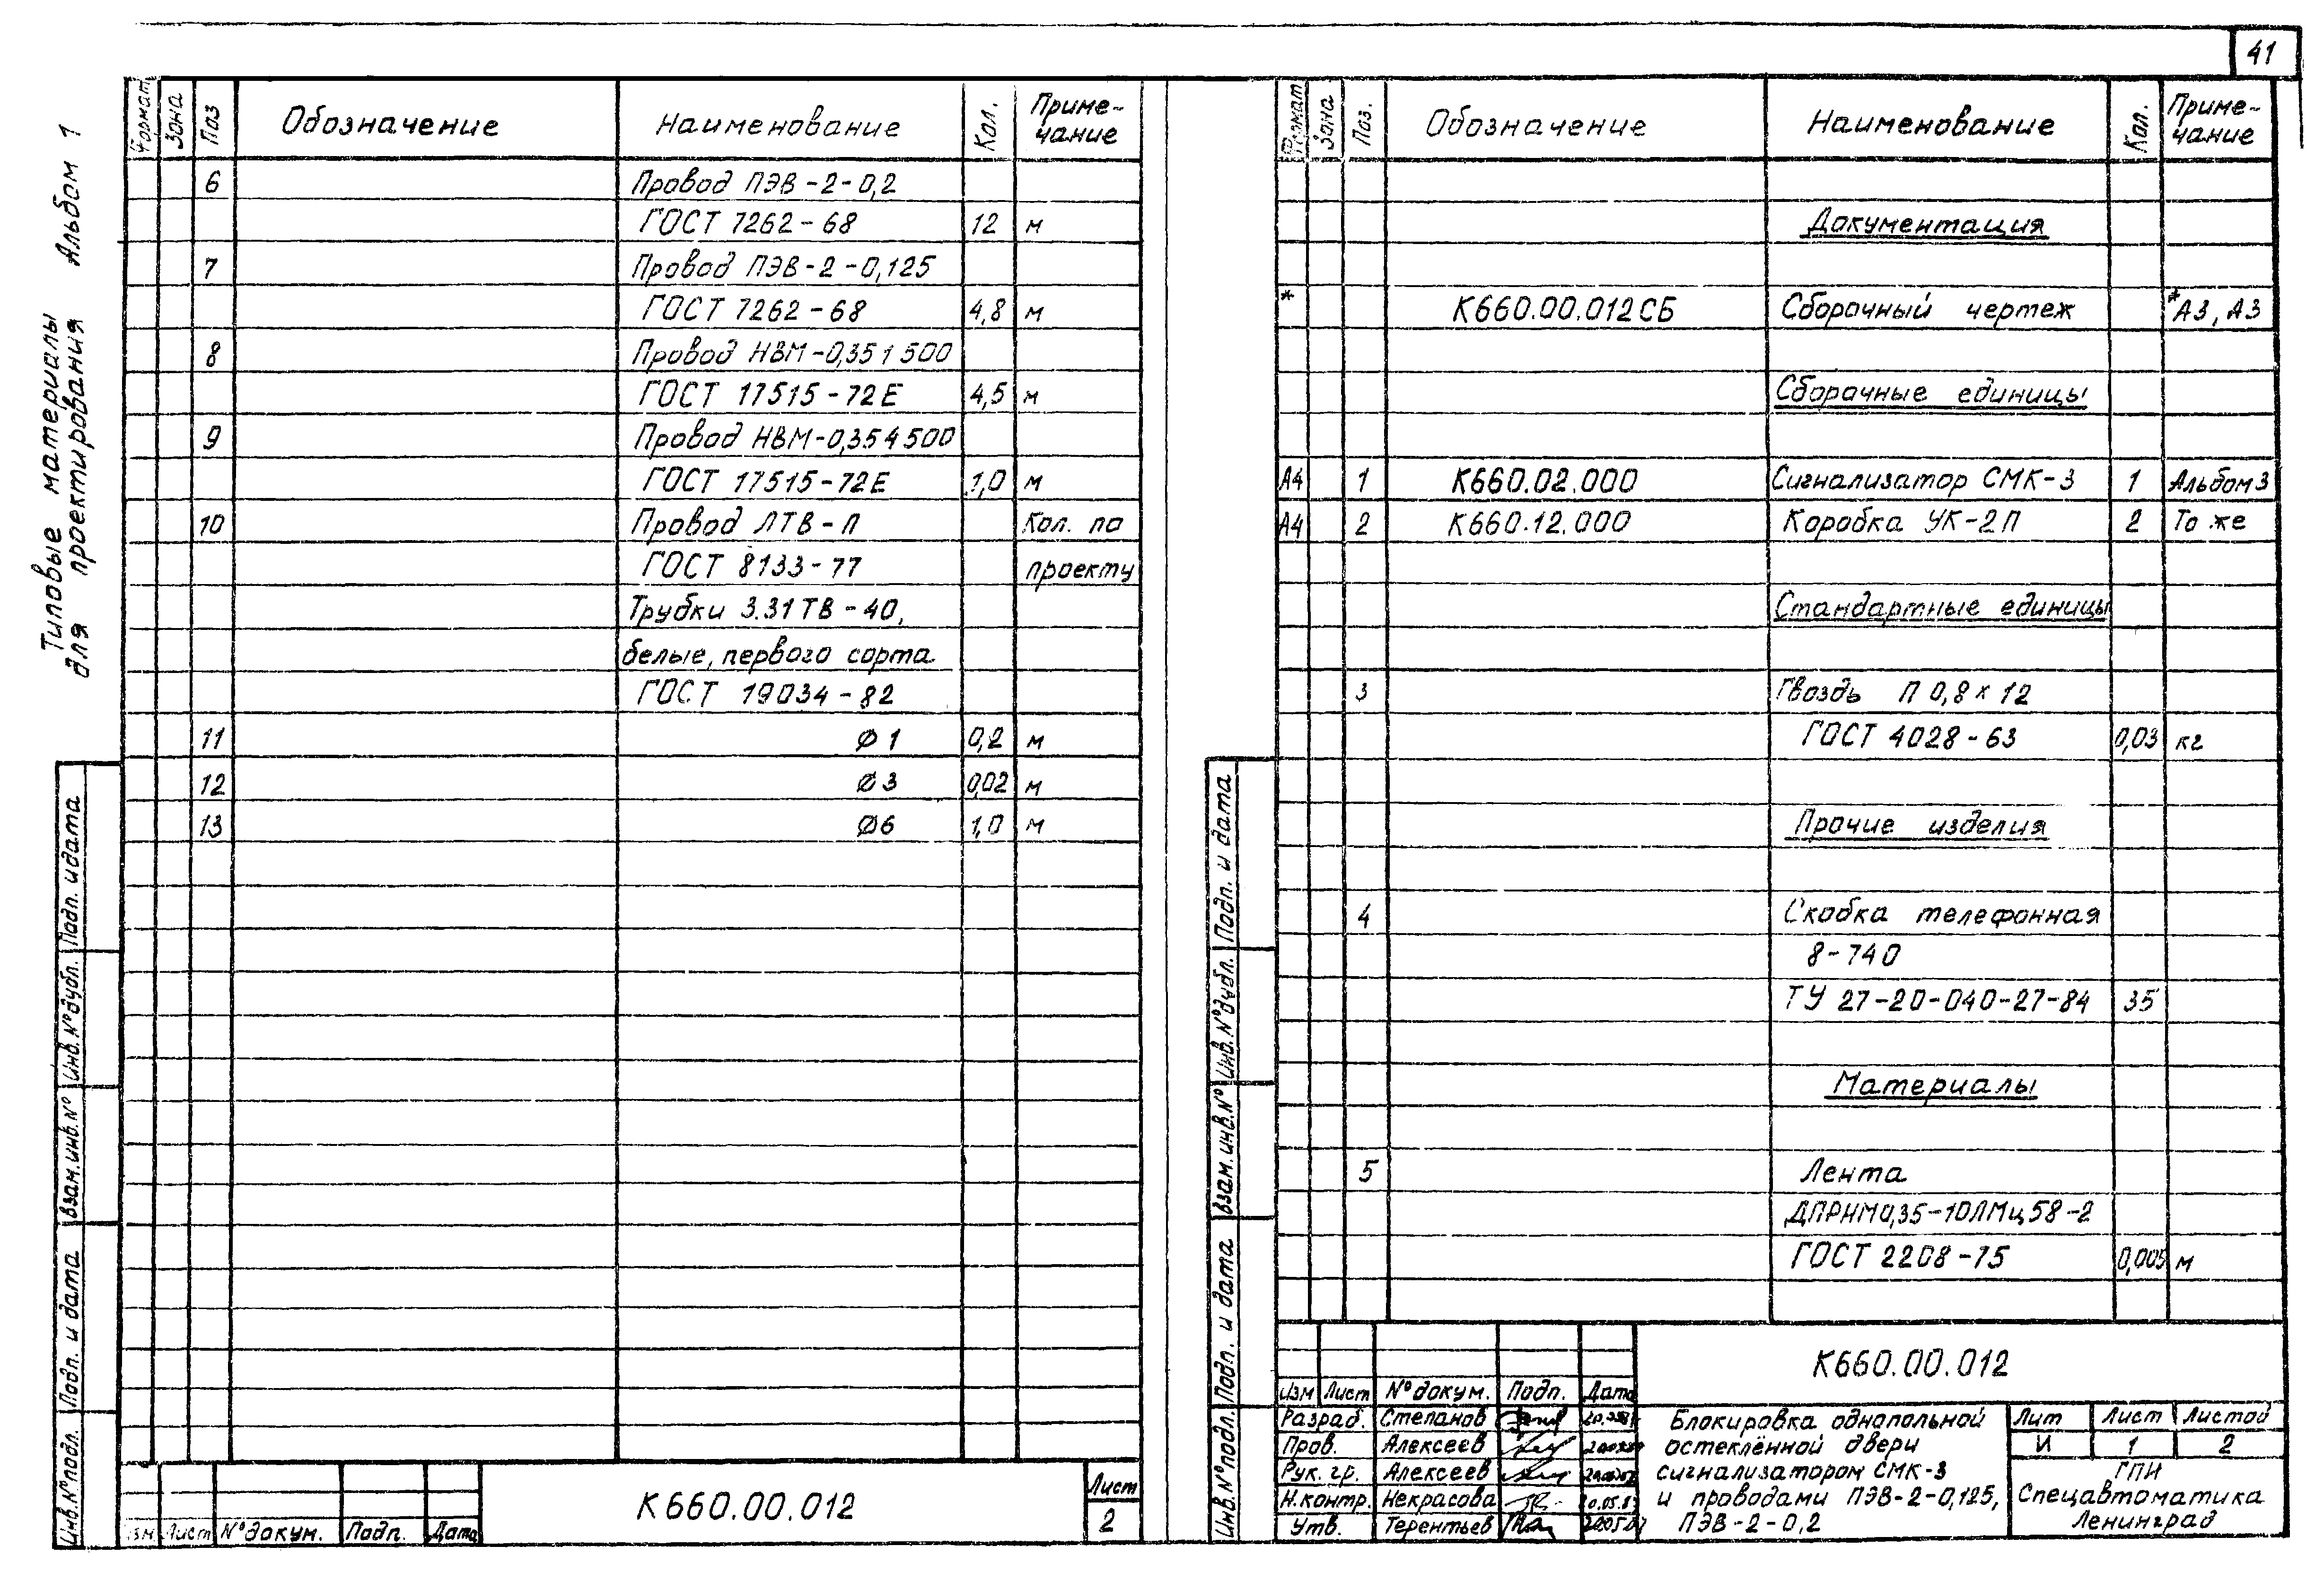 41
Типовые материалы
для проектирования Альбом 1
Формат Зона Поз Обозначение Наименование Кол. Приме-
чание
6 Провод ПЭВ-2-0,2
ГОСТ 7262-68 12 м
7 Провод ПЭВ-2-0,125
ГОСТ 7262-68 4,8 м
8 Провод НВМ-0,35 1 500
ГОСТ 17515-72Е 4,5 м
9 Провод НВМ-0,35 4 500
ГОСТ 17515-72Е 1,0 м
10 Провод ЛТВ-П Кол. по
ГОСТ 8133-77 проекту
Трубки 3.31ТВ-40,
белые, первого сорта
ГОСТ 19034-82
11 Ø1 0,2 м
12 Ø3 0,02 м
13 Ø6 1,0 м
Подп. и дата
Инв.№дубл.
Взам.инв.№
Подп. и дата
Инв.№подл.
Изм Лист №докум. Подп. Дата
К660.00.012
Лист
2
Формат Зона Поз. Обозначение Наименование Кол. Приме-
чание
Документация
* К660.00.012СБ Сборочный чертеж *А3, А3
Сборочные единицы
А4 1 К660.02.000 Сигнализатор СМК-3 1 Альбом 3
А4 2 К660.12.000 Коробка УК-2П 2 То же
Стандартные единицы
3 Гвоздь П 0,8х12
ГОСТ 4028-63 0,03 кг
Прочие изделия
4 Скобка телефонная
8-740
ТУ 27-20-040-27-84 35
Материалы
5 Лента
ДПРНМ0,35-10ЛМц58-2
ГОСТ 2208-75 0,005 м
Подп. и дата
Инв.№дубл.
Взам.инв.№
Подп. и дата
Инв.№подл.
К660.00.012
Изм Лист №докум. Подп. Дата
Разраб. Степанов
Пров. Алексеев
Рук. гр. Алексеев
Н.контр. Некрасова
Утв. Терентьев
Блокировка однопольной
остеклённой двери
сигнализатором СМК-3
и проводами ПЭВ-2-0,125,
ПЭВ-2-0,2
Лит Лист Листов
И 1 2
ГПИ
Спецавтоматика
Ленинград